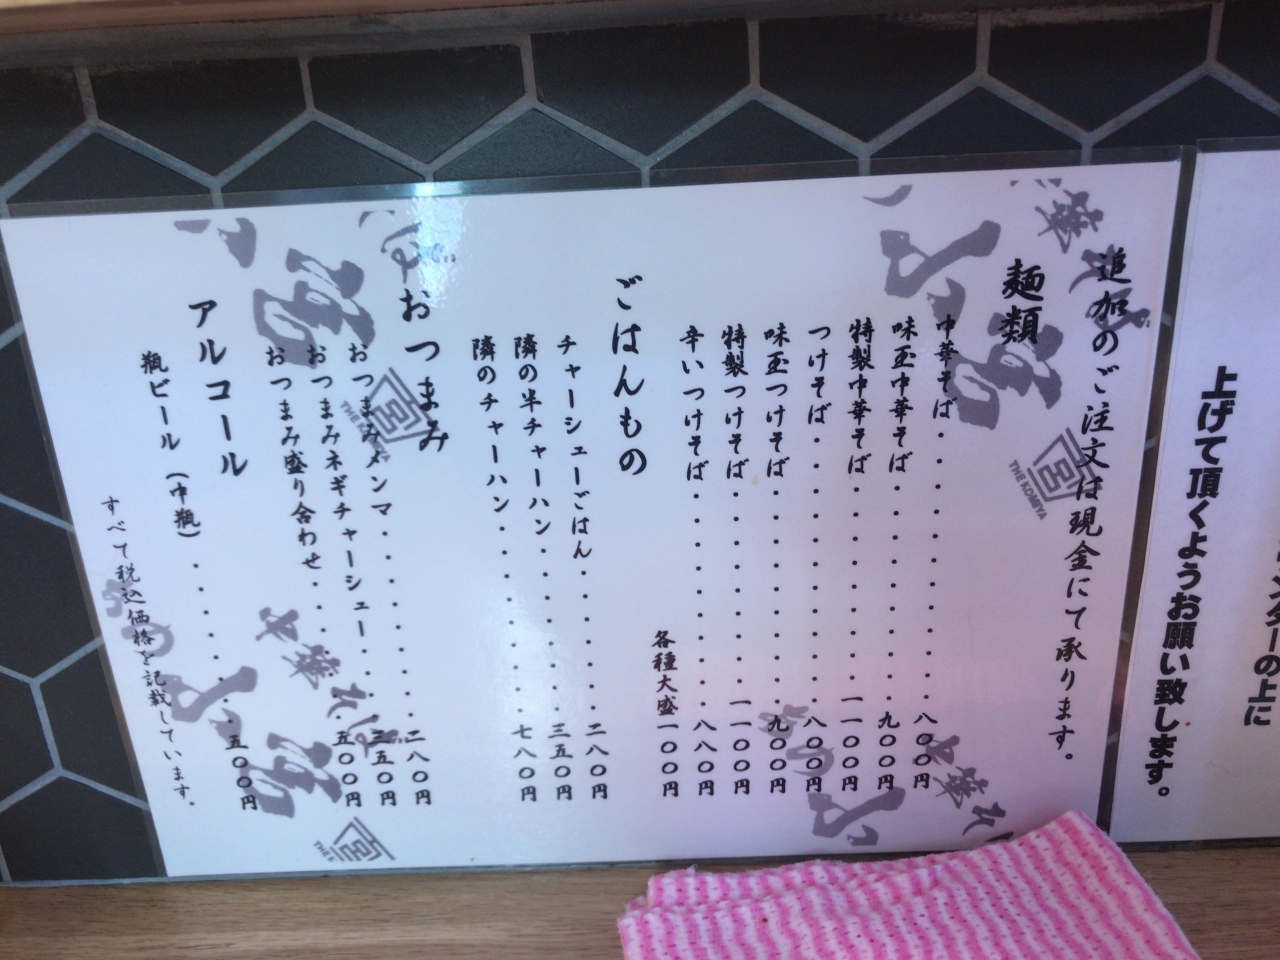 追加のご注文は現金にて承ります。
麺類
中華そば・・・・・・・・八〇〇円
味玉中華そば・・・・・・九〇〇円
特製中華そば・・・・・一一〇〇円
つけそば・・・・・・・・八〇〇円
味玉つけそば・・・・・・九〇〇円
特製つけそば・・・・・一一〇〇円
辛いつけそば・・・・・・八八〇円
各種大盛一〇〇円
ごはんもの
チャーシューごはん・・・・二八〇円
隣の半チャーハン・・・・・三五〇円
隣のチャーハン・・・・・・七八〇円
おつまみ
おつまみメンマ・・・・・・二八〇円
おつまみネギチャーシュー・・・三五〇円
おつまみ盛り合わせ・・・・五〇〇円
アルコール
瓶ビール(中瓶)・・・・・・五〇〇円
すべて税込価格を記載しています。
THE KOMIYA
の上に
上げて頂くようお願い致します。